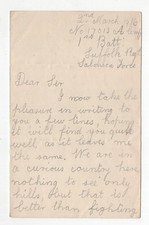 2nd March 1916
No 17713 A Coy
1st Batt
Suffolk Regt
Salonica Force
Dear Sir
I now take the
pleasure in writing to
you a few lines, hoping
it will find you quite
well as it leaves me
the same. We are in
a curious country here
nothing to see only
hills, but that is
better than fighting